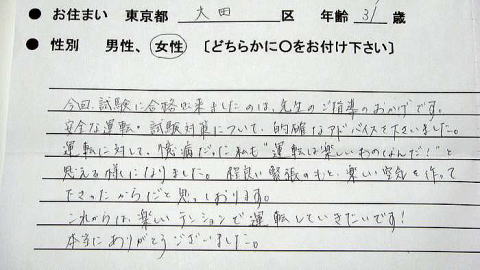 ● お住まい 東京都 大田 区 年齢 31 歳
● 性別 男性、女性 〔どちらかに〇をお付け下さい〕
今回、試験に合格出来ましたのは、先生のご指導のおかげです。
安全な運転・試験対策について、的確なアドバイスを下さいました。
運転に対して、憶病だった私も"運転は楽しいものなんだ!"と
思える様になりました。程良い緊張のもと、楽しい空気を作って
下さったからだと思っております。
これからは、楽しいテンションで運転していきたいです!
本当にありがとうございました。